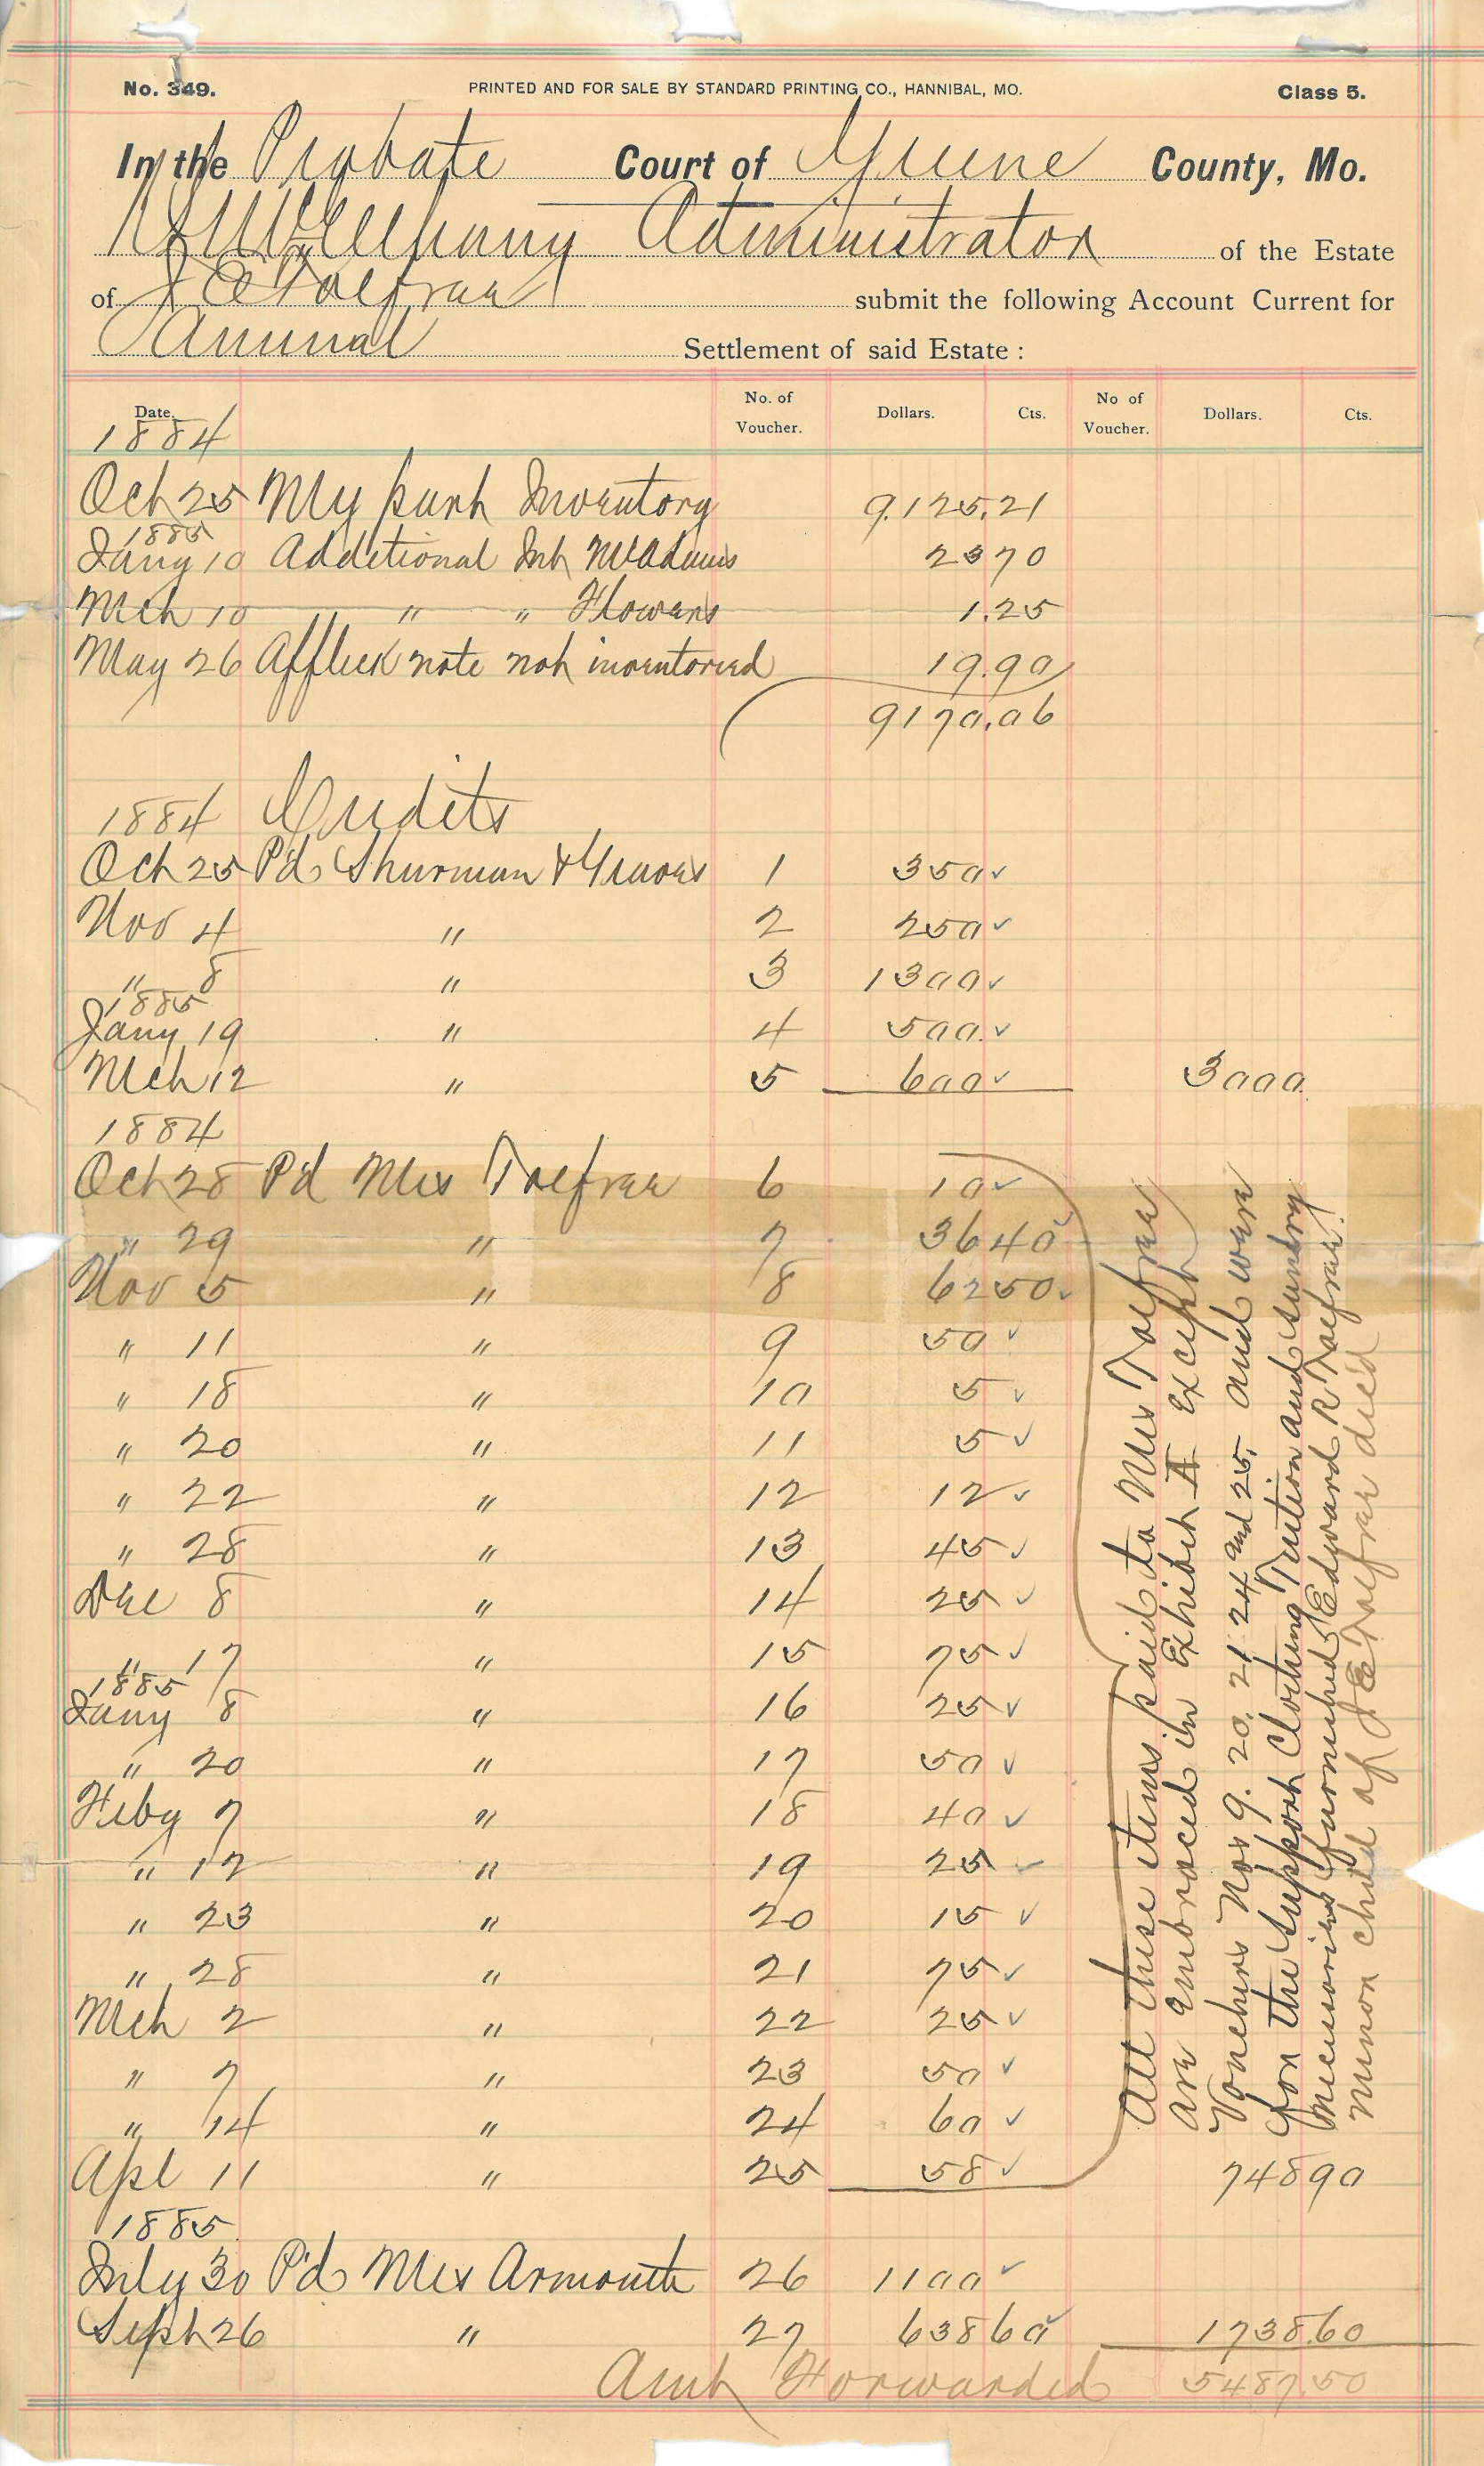 No. 349. PRINTED AND FOR SALE BY STANDARD PRINTING CO., HANNIBAL, MO. Class 5.
In the Probate Court of Greene County, Mo.
Administrator of the Estate
of J E Tolfree submit the following Account Current for
Annual Settlement of said Estate :
Date. No. of Voucher. Dollars. Cts. No of Voucher. Dollars. Cts.
1884
Oct 25 My part Inventory 9.125.21
1885
Jany 10 Additional Int McAdams 23 70
Mch 10 " " Flowers 1.25
May 26 Affleck note not inventoried 19.90
9170.06
1884 Credits
Oct 25 Pd Shurman & Graves 1 350 ✓
Nov 4 " 2 250 ✓
" 8 " 3 1300 ✓
1885
Jany 19 " 4 500. ✓
Mch 12 " 5 600 ✓ 3000
1884
Oct 28 Pd Mrs Tolfree 6 10 ✓
" 29 " 7 36 40 ✓
Nov 5 " 8 62 50 ✓
" 11 " 9 50 ✓
" 18 " 10 5 ✓
" 20 " 11 5 ✓
" 22 " 12 12 ✓
" 28 " 13 45 ✓
Dec 8 " 14 25 ✓
" 17 " 15 75 ✓
1885
Jany 8 " 16 25 ✓
" 20 " 17 50 ✓
Feby 7 " 18 40 ✓
" 12 " 19 25 ✓
" 23 " 20 15 ✓
" 28 " 21 75 ✓
Mch 2 " 22 25 ✓
" 7 " 23 50 ✓
" 14 " 24 60 ✓
Apl 11 " 25 58 ✓ 748 90
All these items paid to Mrs Tolfree
are embraced in Exhibit A except
Vouchers Nos 9. 20. 21 24 and 25. and were
for the support Clothing Tuition and sundry
necessaries furnished Edward R Tolfree
minor child of J E Tolfree died
1885
July 30 Pd Mrs Armonth 26 1100 ✓
Sept 26 " 27 638 60 ✓ 1738.60
Amt Forwarded 5487.50